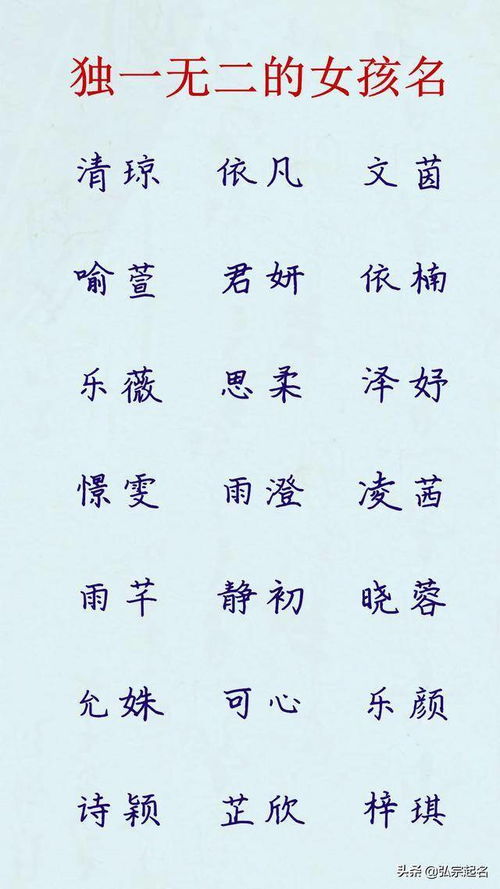 独一无二的女孩名
清琼 依凡 文茵
喻萱 君妍 依楠
乐薇 思柔 泽妤
憬雯 雨澄 凌茜
雨芊 静初 晓蓉
允姝 可心 乐颜
诗颖 芷欣 梓琪
头条@弘宗起名